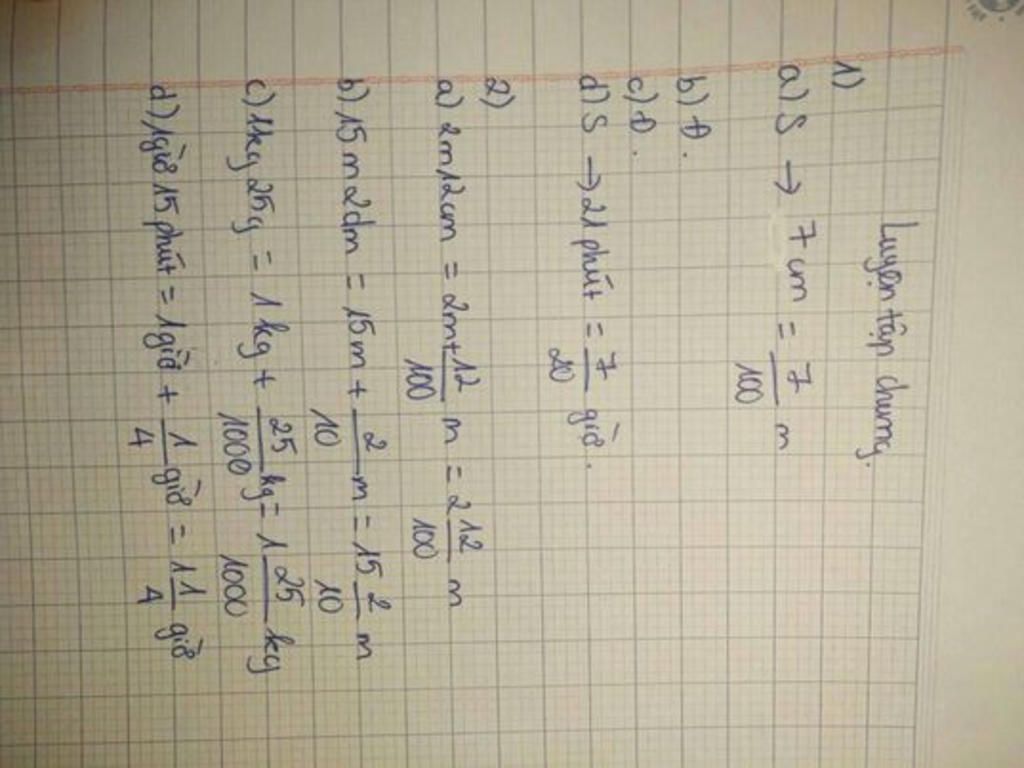 Luyện tập chung.
1)
a) S → 7 cm = 7/100 m
b) Đ.
c) Đ.
d) S → 21 phút = 7/20 giờ.
2)
a) 2m12cm = 2m + 12/100 m = 2 12/100 m
b) 15m2dm = 15m + 2/10 m = 15 2/10 m
c) 1kg 25g = 1kg + 25/1000 kg = 1 25/1000 kg
d) 1giờ 15 phút = 1giờ + 1/4 giờ = 1 1/4 giờ